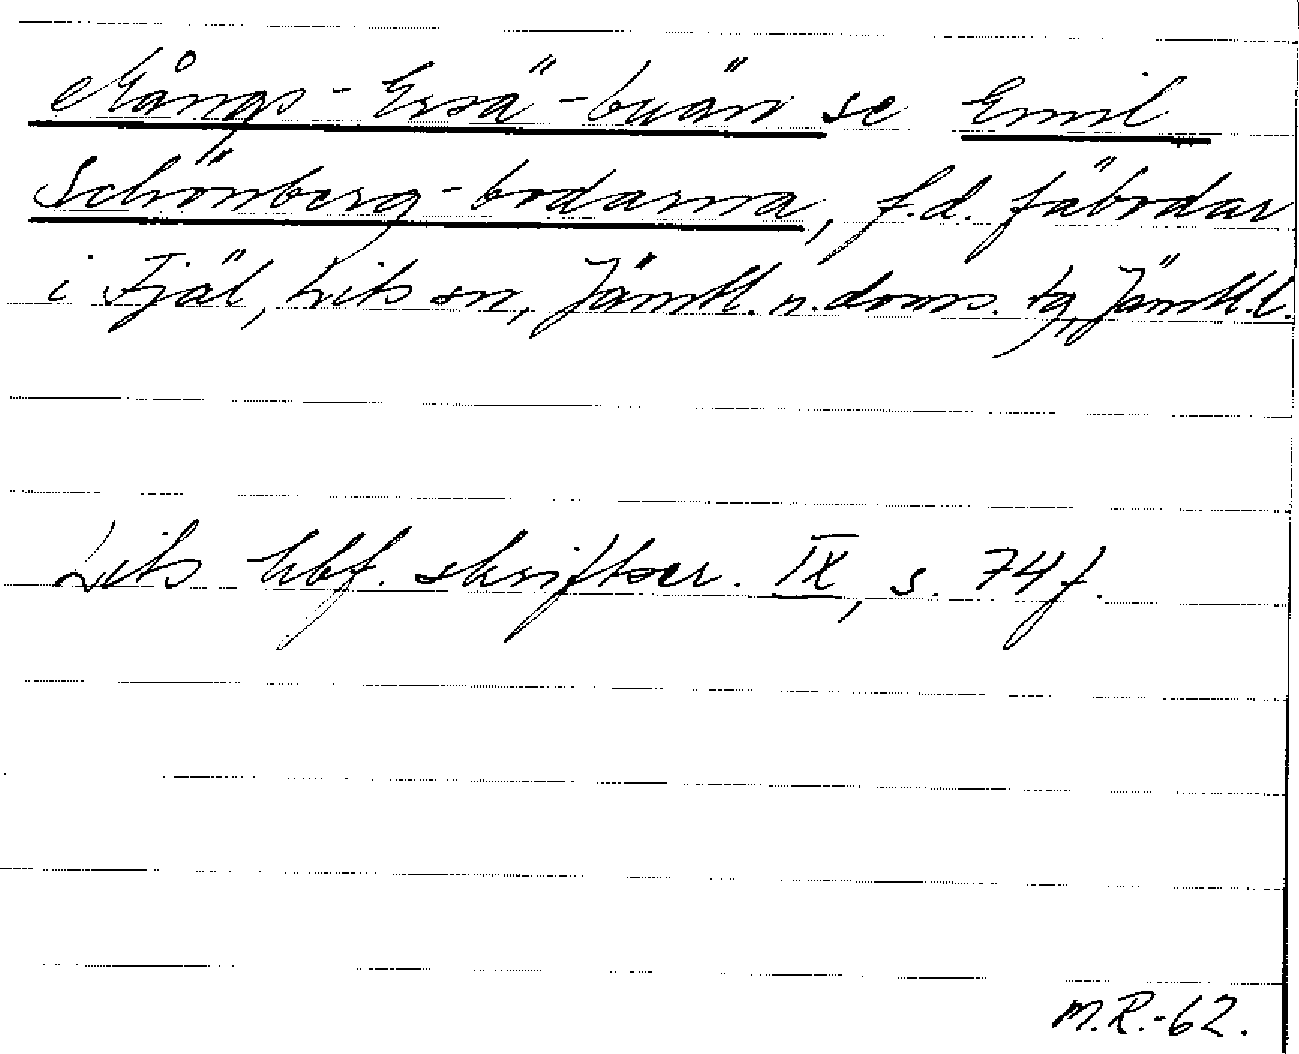 Mångs-Ersä-buän se Emil
Schönberg-bodarna, f.d. fäbodar
i Fjäl, Lits sn, Jämtl. n. doms. tg, Jämtl.l.
Lits hbf. skriftser. IX, s. 74f.
M.R.-62.